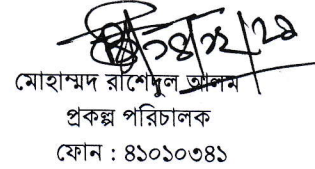 ২৪/১২/২৪
মোহাম্মদ রাশেদুল আলম
প্রকল্প পরিচালক
ফোন : ৪১০১০৩৪১